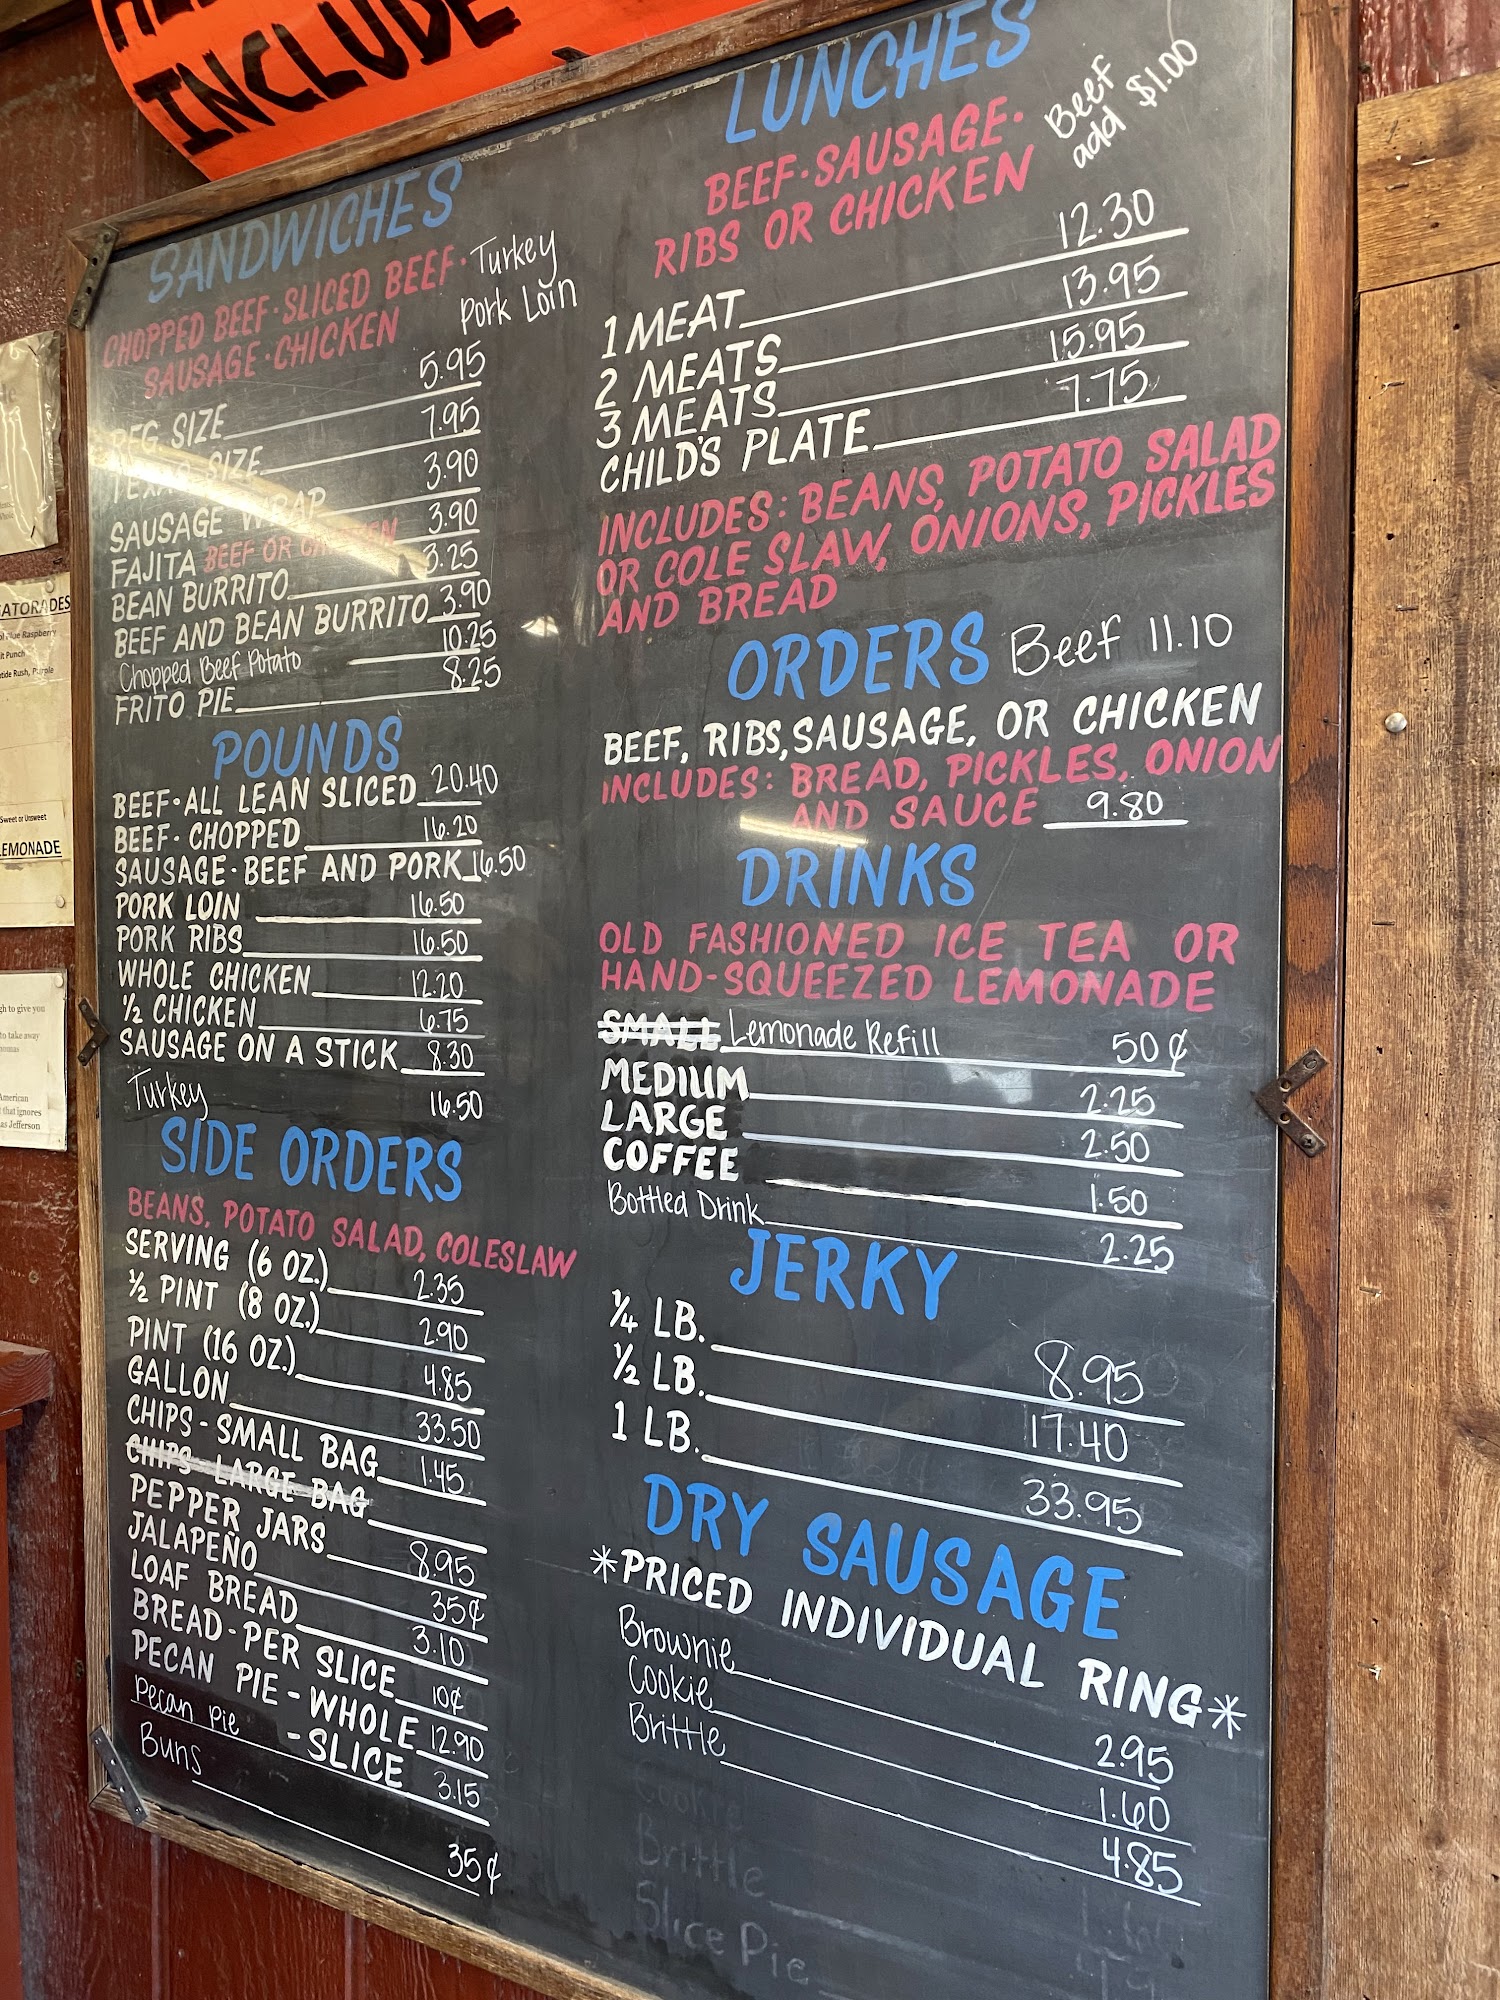 INCLUDE
SANDWICHES
CHOPPED BEEF · SLICED BEEF · Turkey
SAUSAGE · CHICKEN Pork Loin
REG SIZE 5.95
TEXAS SIZE 7.95
SAUSAGE WRAP 3.90
FAJITA BEEF OR CHICKEN 3.90
BEAN BURRITO 3.25
BEEF AND BEAN BURRITO 3.90
Chopped Beef Potato 10.25
FRITO PIE 8.25
POUNDS
BEEF · ALL LEAN SLICED 20.40
BEEF · CHOPPED 16.20
SAUSAGE · BEEF AND PORK 16.50
PORK LOIN 16.50
PORK RIBS 16.50
WHOLE CHICKEN 12.20
½ CHICKEN 6.75
SAUSAGE ON A STICK 8.30
Turkey 16.50
SIDE ORDERS
BEANS, POTATO SALAD, COLESLAW
SERVING (6 OZ.) 2.35
½ PINT (8 OZ.) 2.90
PINT (16 OZ.) 4.85
GALLON 33.50
CHIPS - SMALL BAG 1.45
CHIPS - LARGE BAG
PEPPER JARS 8.95
JALAPEÑO 35¢
LOAF BREAD 3.10
BREAD - PER SLICE 10¢
PECAN PIE - WHOLE 12.90
Pecan Pie - SLICE 3.15
Buns 35¢
LUNCHES
BEEF · SAUSAGE ·
RIBS OR CHICKEN
Beef
add $1.00
1 MEAT 12.30
2 MEATS 13.95
3 MEATS 15.95
CHILD'S PLATE 7.75
INCLUDES: BEANS, POTATO SALAD
OR COLE SLAW, ONIONS, PICKLES
AND BREAD
ORDERS Beef 11.10
BEEF, RIBS, SAUSAGE, OR CHICKEN
INCLUDES: BREAD, PICKLES, ONION
AND SAUCE 9.80
DRINKS
OLD FASHIONED ICE TEA OR
HAND-SQUEEZED LEMONADE
SMALL Lemonade Refill 50¢
MEDIUM 2.25
LARGE 2.50
COFFEE 1.50
Bottled Drink 2.25
JERKY
¼ LB. 8.95
½ LB. 17.40
1 LB. 33.95
DRY SAUSAGE
*PRICED INDIVIDUAL RING*
Brownie 2.95
Cookie 1.60
Brittle 4.85
Cookie
Brittle
Slice Pie
GATORADES
Blue Raspberry
Punch
Rush, Purple
Sweet or Unsweet
LEMONADE
gh to give you
to take away
American
that ignores
as Jefferson